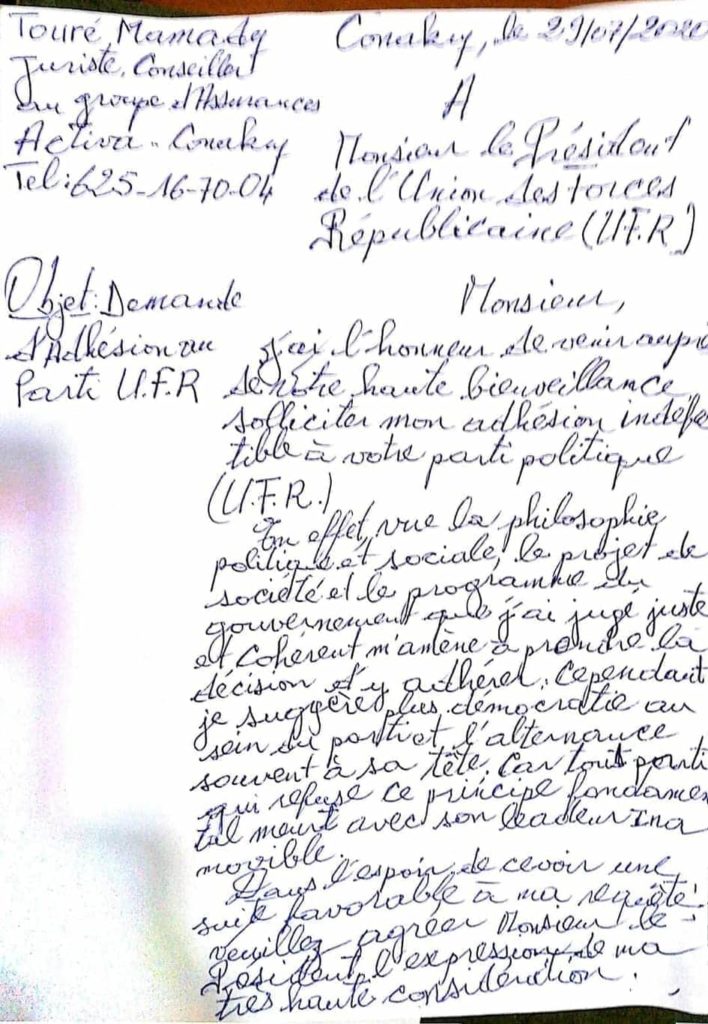 Touré Mamady
Juriste, Conseiller
au groupe d'Assurances
Activa - Conakry
Tel: 625-16-70-04
Conakry, le 29/07/2020
A
Monsieur le Président
de l'Union des Forces
Républicaine (U.F.R)
Objet: Demande
d'Adhésion au
Parti U.F.R
Monsieur,
j'ai l'honneur de venir auprè
de votre haute bienveillance
solliciter mon adhésion indéfec
tible à votre parti politique
(U.F.R.)
En effet, vue la philosophie
politique et sociale, le projet de
société et le programme du
gouvernement que j'ai jugé juste
et cohérent m'amène à prendre la
décision d'y adhérer. Cependant
je suggère plus démocratie au
sein du parti et l'alternance
souvent à sa tête. Car tout parti
qui refuse ce principe fondamen
tal meurt avec son leadeur ina
movible.
Dans l'espoir de cevoir une
suite favorable à ma requête
veuillez agréer Monsieur le
Président l'expression de ma
très haute considération.